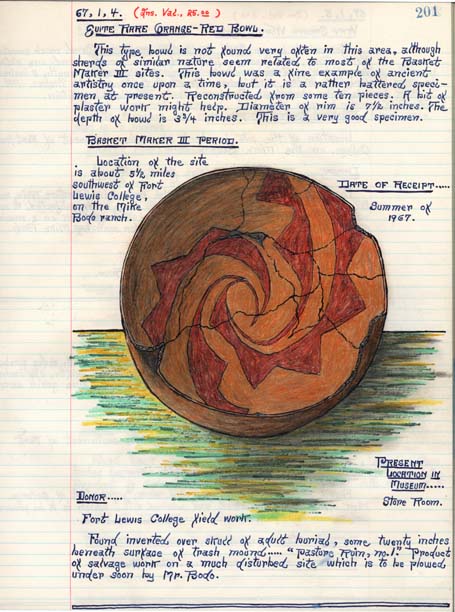 67, 1, 4. (Ins. Val., 25.00 ) 201
Quite Rare Orange-Red Bowl.
This type bowl is not found very often in this area, although
sherds of similar nature seem related to most of the Basket
Maker III sites. This bowl was a fine example of ancient
artistry once upon a time, but it is a rather battered speci-
men at present. Reconstructed from some ten pieces. A bit of
plaster work might help. Diameter of rim is 7½ inches. The
depth of bowl is 3¾ inches. This is a very good specimen.
Basket Maker III Period.
Location of the site
is about 5½ miles
southwest of Fort
Lewis College,
on the Mike
Bodo ranch.
Date of Receipt.....
Summer of
1967.
Present
Location in
Museum.....
Stone Room.
Donor.....
Fort Lewis College field work.
Found inverted over skull of adult burial, some twenty inches
beneath surface of trash mound..... "Pasture Ruin, no. 1." Product
of salvage work on a much disturbed site which is to be plowed
under soon by Mr. Bodo.